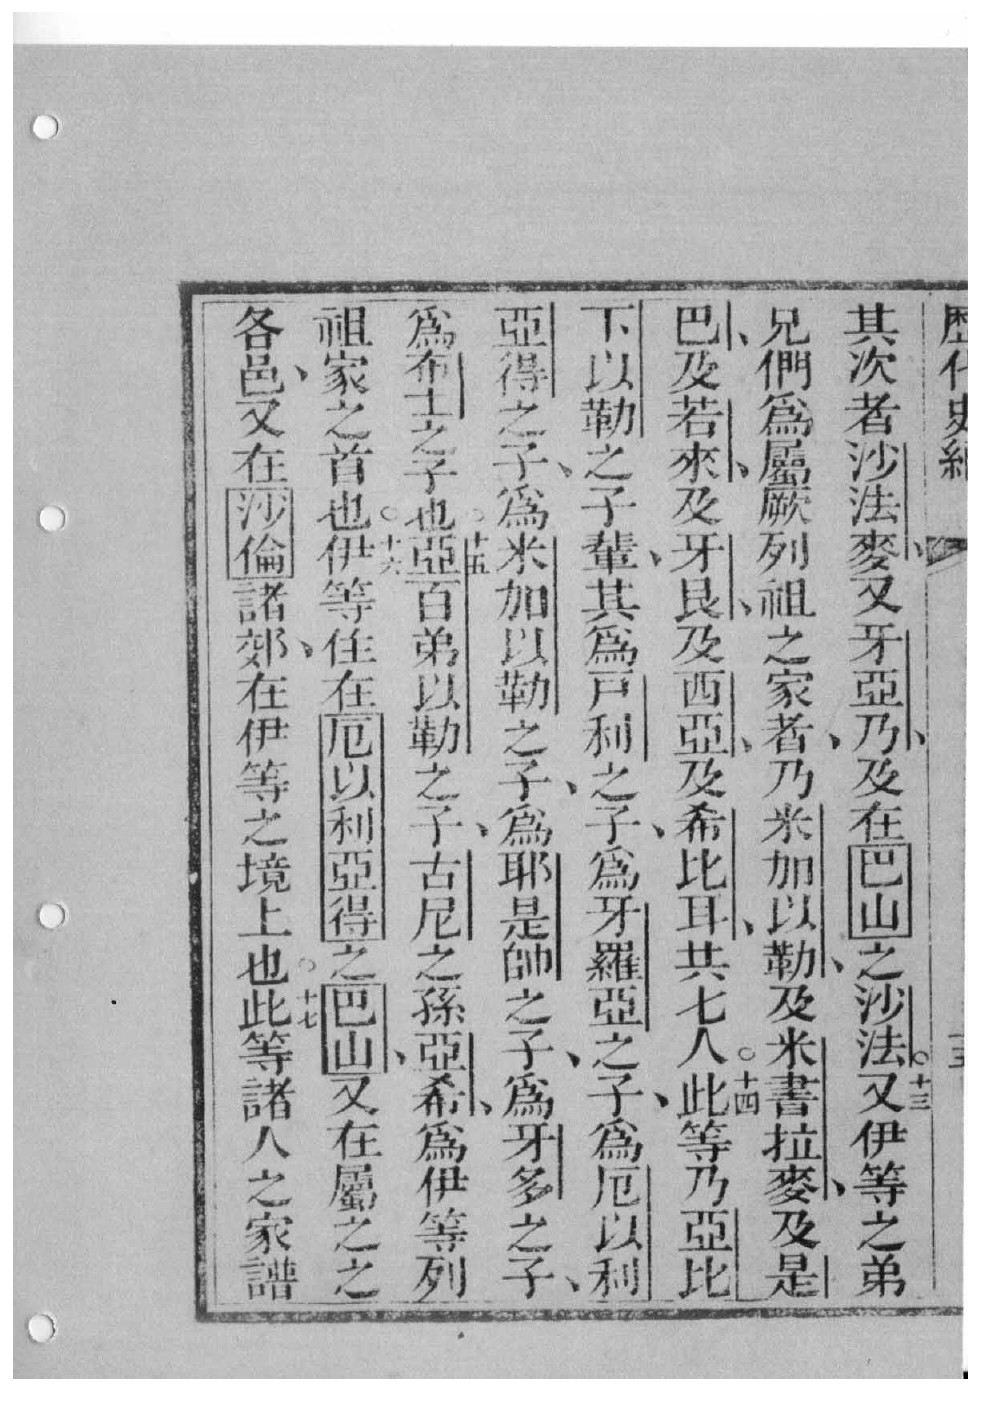 歷代史紀
其次者沙法麥、又牙亞乃、及在巴山之沙法。十三又伊等之弟
兄們爲屬厥列祖之家者、乃米加以勒、及米書拉麥、及是
巴、及若來、及牙艮、及西亞、及希比耳、共七人。十四此等乃亞比
下以勒之子輩、其爲戸利之子、爲牙羅亞之子、爲厄以利
亞得之子、爲米加以勒之子、爲耶是帥之子、爲牙多之子、
爲布士之子也。十五亞百弟以勒之子、古尼之孫亞希、爲伊等列
祖家之首也。十六伊等住在厄以利亞得之巴山、又在屬之之
各邑、又在沙倫諸郊、在伊等之境上也。十七此等諸人之家譜